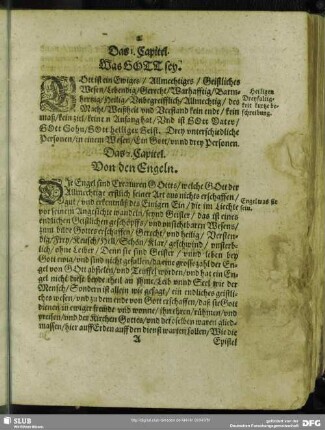 Das 1. Capitel.
Was GOTT sey.
GOtt ist ein Ewiges / Allmechtiges / Geistliches
Wesen / Lebendig / Gerecht / Warhafftig / Barm-
hertzig / Heilig / Unbegreifflich / Allmechtig / des
Macht / Weißheit und Verstand kein ende / kein
maß / kein ziel / keinen Anfang hat / Und ist GOtt Vater /
GOtt Sohn / GOtt heiliger Geist. Drey unterschiedliche
Personen / in einem Wesen / Ein Gott / unnd drey Personen.
Heiligen
Dreyfaltig-
keit kurtze be-
schreibung.
Das 2. Capitel.
Von den Engeln.
DIe Engel sind Creaturen GOttes / welche GOtt der
Allmechtige erstlich seiner Art
gut / und erkentnüß des Einigen Ein / die im Liechte
vor seinem Angesichte wandeln / seynd Geister / das ist eines
endlichen Geistlichen geschöpffs / und unsichtbaren Wesens /
zum bilde Gottes erschaffen / Gerecht / und heilig / Versten-
dig / Frey / Keusch / Hell / Schön / Klar / geschwind / unsterb-
lich / ohne Leiber / Denn sie sind Geister / unnd leben bey
Gott ewig / und sind nicht gefallen / da eine grosse zahl der En-
gel von GOtt abfielen / und Teuffel wurden / und hat ein En-
gel nicht diese beyde theil an ihme / Leib unnd Seel wie der
Mensch / Sondern ist allein wie gesagt / ein endliches geistli-
ches wesen / und zu dem ende von Gott erschaffen / daß sie Gott
dienen zu ewiger freude und wonne / ihn ehren / rühmen / und
preisen / und der Kirchen Gottes / und derselben waren glied-
massen / hier auff Erden auff den dienst warten sollen / Wie die
Engel was sie
sein.
A
Epistel
SLUB
Wir führen Wissen.
gefördert von der
Deutschen Forschungsgemeinschaft
DFG